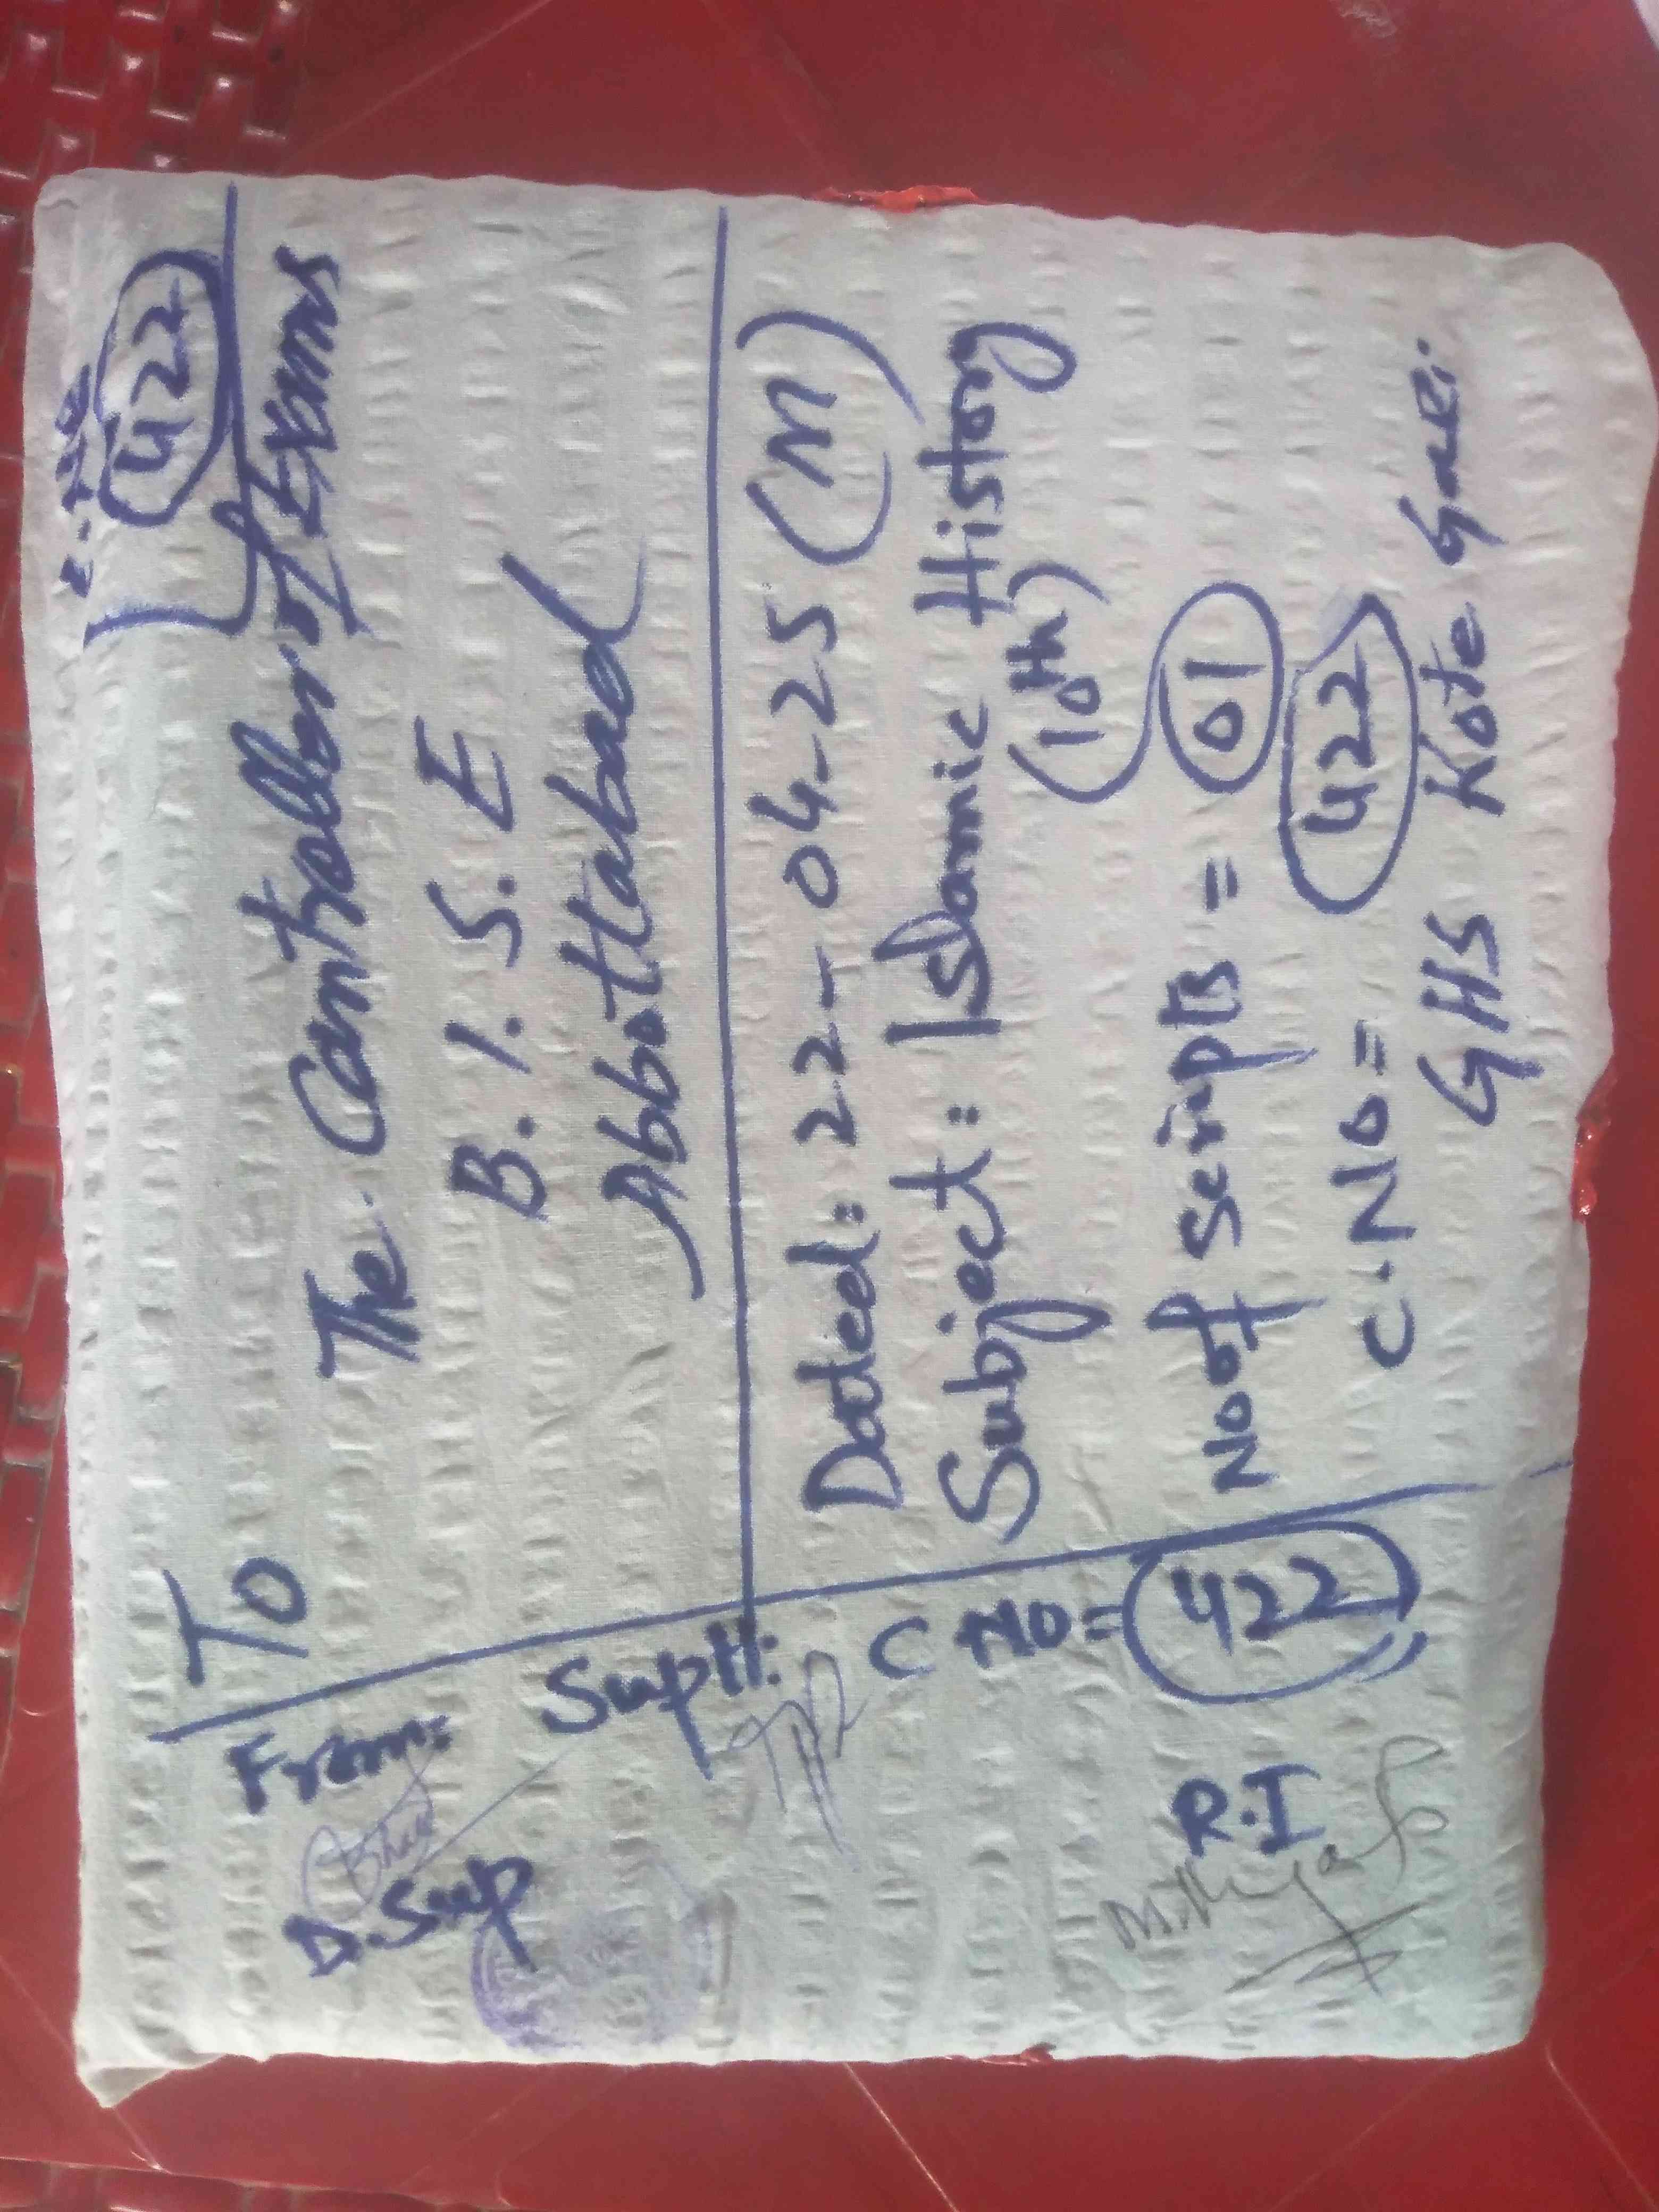 422
To
The Controller of Exams
B.I.S.E
Abbottabad
Dated: 22-04-25 (M)
Subject: Islamic History
(10th)
No of Scripts = 01
C.No = 422
GHS Kote Gali
From:
D.Sup
Suptt:
C No = 422
R.I